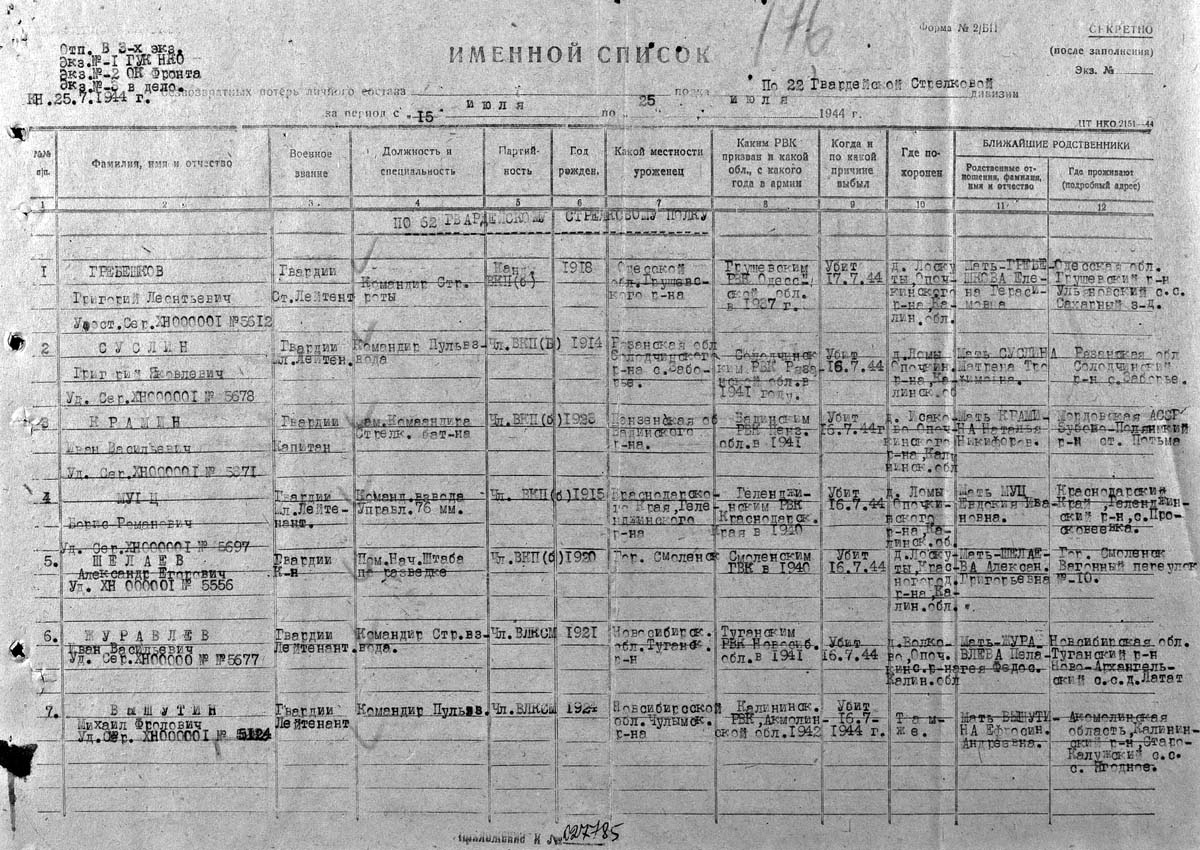 176
Форма № 2/БП
СЕКРЕТНО
(после заполнения)
Экз. №
Отп. В 3-х экз.
Экз.№-1 ГУК НКО
Экз.№-2 ОК Фронта
Экз.№-3 в дело.
КН.25.7.1944 г.
ИМЕННОЙ СПИСОК
безвозвратных потерь личного состава полка По 22 Гвардейской Стрелковой дивизии
за период с „15 июля по „25 июля 1944 г.
ЦТ НКО 2151—44
№№ п/п.
Фамилия, имя и отчество
Военное звание
Должность и специальность
Партий-
ность
Год рожден.
Какой местности уроженец
Каким РВК призван и какой обл., с какого года в армии
Когда и по какой причине выбыл
Где по-
хоронен
БЛИЖАЙШИЕ РОДСТВЕННИКИ
Родственные от-
ношения, фамилия, имя и отчество
Где проживают (подробный адрес)
1 2 3 4 5 6 7 8 9 10 11 12
ПО 62 ГВАРДЕЙСКОМУ СТРЕЛКОВОМУ ПОЛКУ
1 ГРЕБЕШКОВ
Григорий Леонтьевич
Удост.Сер.ХН000001 №5612
Гвардии
Ст.Лейтент
Командир Стр.
роты
Канд.
ВКП(б)
1918
Одесской
обл.Грушевс-
кого р-на
Грушевским
РВК Одесс-
ской обл.
в 1937 г.
Убит
17.7.44
д. Лоску
ты,Опоч-
кинского
р-на,Ка-
лин.обл.
Мать-ГРЕБЕ-
ШКОВА Еле-
на Гераси-
мовна
Одесская обл.
Грушевский р-н
Ульяновский с.с.
Сахарный з-д.
2 СУСЛИН
Григорий Яковлевич
Уд. Сер.ХН000001 № 5678
Гвардии
Мл.Лейтен.
Командир Пульвз-
вода
Чл.ВКП(б)
1914
Рязанская обл
Солодчинского
р-на с.Забо-
рье.
Солодчинск
ким РВК Ряза-
нской обл.в
1941 году.
Убит
16.7.44
д.Ломы
Опочкин.
р-на,Ка-
линск.об
Мать СУСЛИНА
Матрена Тро
химовна.
Рязанская обл
Солодчинский
р-н с.Заборье.
3 КРАМИН
Иван Васильевич
Уд. Сер.ХН000001 № 5371
Гвардии
Капитан
Зам.Командира
Стрелк. бат-на
Чл.ВКП(б)
1923
Пензенская об
Вадинского
р-на.
Вадинским
РВК Пенз.
обл.в 1941
Убит
16.7.44г
д. Исако-
во Опоч-
кинского
р-на,Кали
нинск.обл
Мать КРАМИ-
НА Наталья
Никифоров.
Мордовская АССР
Зубово-Полянский
р-н ст. Потьма
4 МУЦ
Борис Романович
Уд. Сер.ХН000001 № 5697
Гвардии
Мл.Лейте-
нант.
Команд.взвода
Управл.76 мм.
Чл. ВКП(б)
1915
Краснодарско-
го Края,Геле-
нджинского
р-на
Геленджи-
нским РВК
Краснодарск.
края в 1940
Убит
16.7.44
д. Ломы
Опочки-
нского
р-на,Ка-
линск.об
Мать МУЦ
Евдокия Ива-
новна.
Краснодарский
Край ,Геленджин-
ский р-н,с.Про-
сковеевка.
5. ШЕЛАЕВ
Александр Егорович
Уд. ХН 000001 № 5556
Гвардии
К-н
Пом.Нач.Штаба
по разведке
Чл.ВКП(б)
1920
Гор. Смоленск
Смоленским
ГВК в 1940
Убит
16.7.44
д.Лоску-
ты,Крас-
ногород.
р-на ,Ка-
лин.обл.
Мать-ШЕЛАЕ-
ВА Алексан.
Григорьевна
Гор. Смоленск
Вагонный переулок
№-10.
6. ЖУРАВЛЕВ
Иван Васильевич
Уд. Сер.ХН00000 № №5677
Гвардии
Лейтенант.
Командир Стр.вз-
вода.
Чл.ВЛКСМ
1921
Новосибирск.
обл.Туганск.
р-н
Туганским
РВК Новосиб.
обл.в 1941
Убит
16.7.44
д.Волко-
во,Опоч-
кинс.р-на
Калин.обл
Мать-ЖУРА-
ВЛЕВА Пела-
гея Федос.
Новосибирская обл.
Туганский р-н
Ново-Архангель-
ский с.с.д.Латат
7. ВЫШУТИН
Михаил Фролович
Уд.Сер. ХН000001 № 5124
Гвардии
Лейтенант
Командир Пульвз.
Чл.ВЛКСМ
1924
Новосибирской
обл.Чулымск.
р-на
Калининск.
РВК,Акмолин-
ской обл.1942
Убит
16.7-
1944 г.
Там-
же.
Мать ВЫШУТИ-
НА Ефросин.
Андреевна.
Акмолинская
область,Калинин-
ский р-н,Старо-
Калужский с.с.
с. Ягодное.
027785